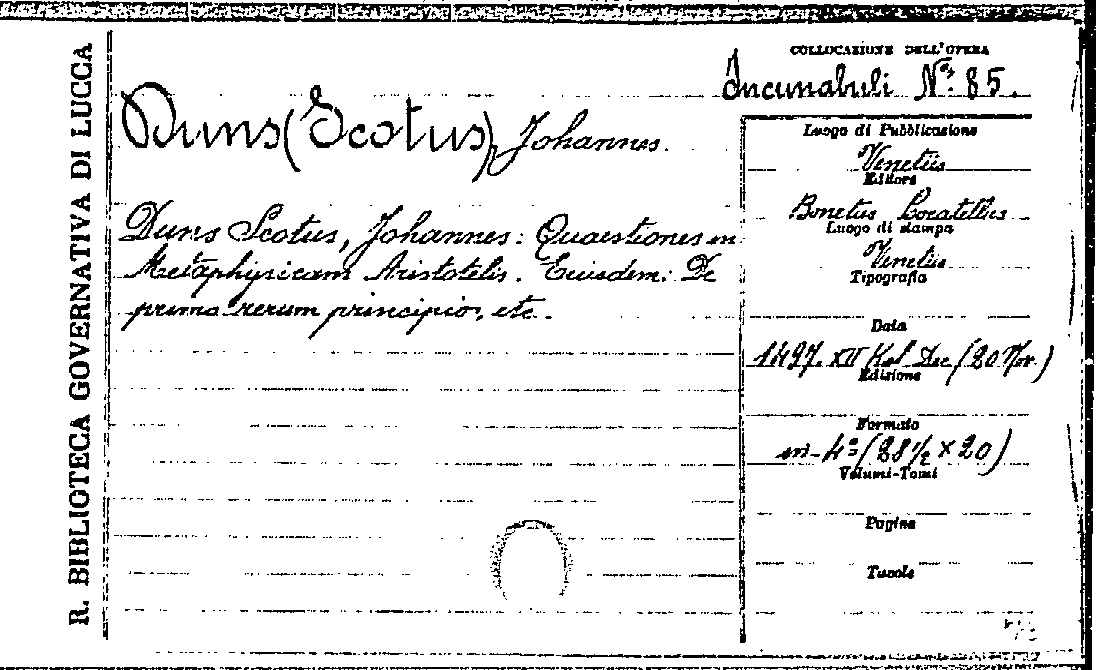 R. BIBLIOTECA GOVERNATIVA DI LUCCA
COLLOCAZIONE DELL'OPERA
Incunabuli N.º 85.
Duns (Scotus), Johannes.
Duns Scotus, Johannes: Quaestiones in
Metaphysicam Aristotelis. Eiusdem: De
primo rerum principio, etc.
Luogo di Pubblicazione
Venetiis
Editore
Bonetus Locatellus
Luogo di stampa
Venetiis
Tipografia
Data
1497. XII Kal Dec (20 Nov.)
Edizione
Formato
in-4º (28½ × 20)
Volumi-Tomi
Pagine
Tavole